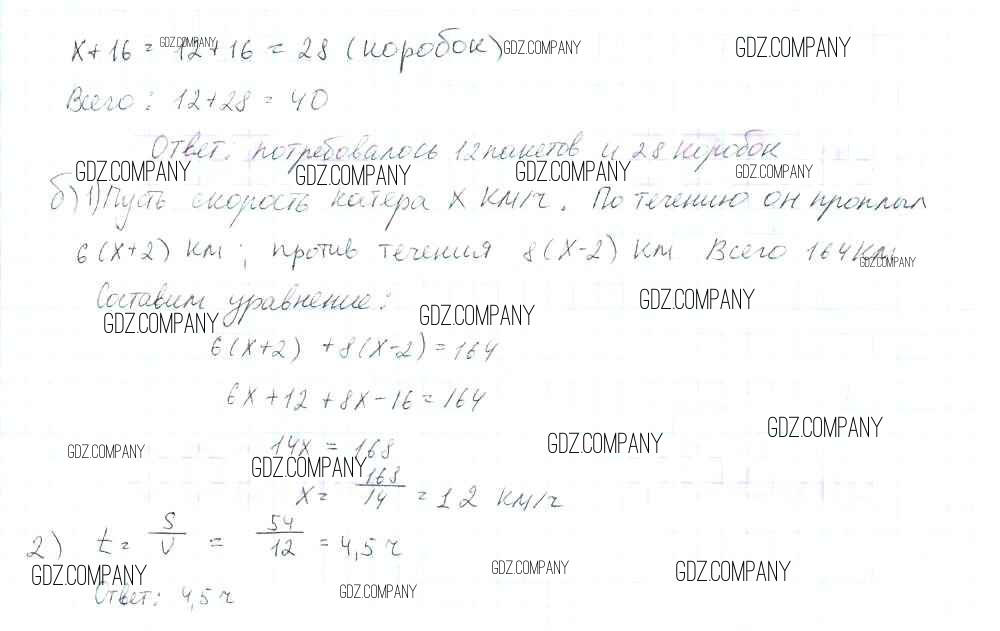 x+16 = 12+16 = 28 (коробок)
GDZ.COMPANY GDZ.COMPANY GDZ.COMPANY
Всего: 12+28 = 40
Ответ: потребовалось 12 пакетов и 28 коробок
GDZ.COMPANY GDZ.COMPANY GDZ.COMPANY GDZ.COMPANY
б) 1) Пусть скорость катера x км/ч. По течению он проплыл
6(x+2) км; против течения 8(x-2) км Всего 164 км
GDZ.COMPANY
Составим уравнение:
GDZ.COMPANY GDZ.COMPANY GDZ.COMPANY
6(x+2) +8(x-2)=164
6x+12 +8x-16=164
GDZ.COMPANY GDZ.COMPANY GDZ.COMPANY
14x = 168
GDZ.COMPANY
x= 168/14 = 12 км/ч
2) t= S/V = 54/12 = 4,5 ч
GDZ.COMPANY GDZ.COMPANY GDZ.COMPANY
Ответ: 4,5 ч
GDZ.COMPANY